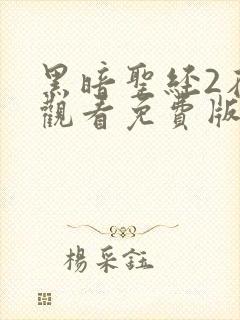 黑暗聖經2
觀看免費版
楊采鈺